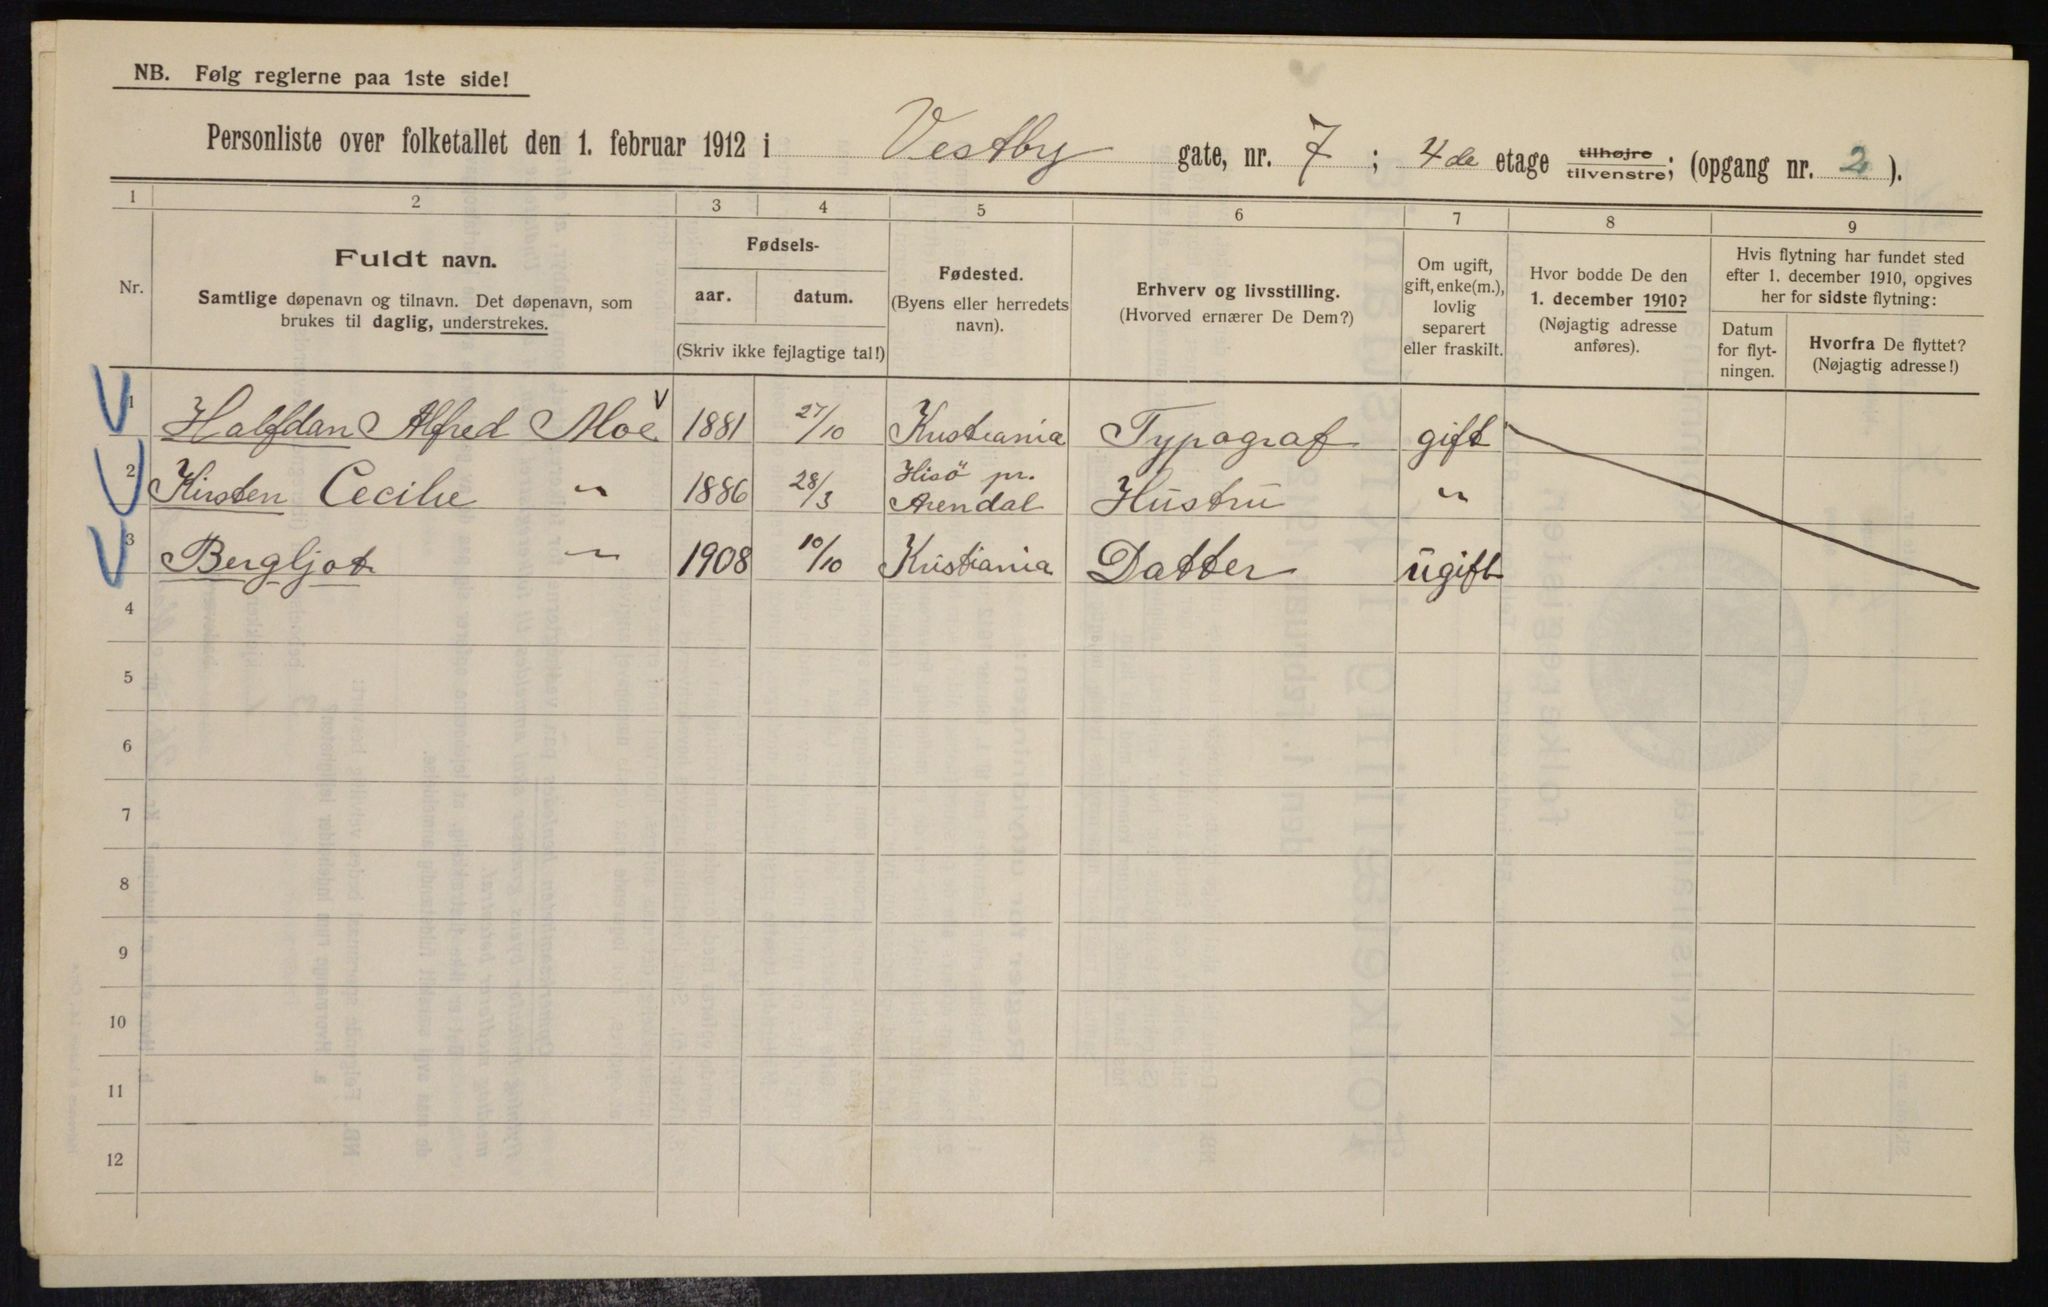 NB. Følg reglerne paa 1ste side!
Personliste over folketallet den 1. februar 1912 i Vestby gate, nr. 7; 4de etage tilhøjre tilvenstre; (opgang nr. 2).
1 2 3 4 5 6 7 8 9
Nr.
Fuldt navn.
Samtlige døpenavn og tilnavn. Det døpenavn, som
brukes til daglig, understrekes.
Fødsels-
aar. datum.
(Skriv ikke fejlagtige tal!)
Fødested.
(Byens eller herredets
navn).
Erhverv og livsstilling.
(Hvorved ernærer De Dem?)
Om ugift,
gift, enke(m.),
lovlig
separert
eller fraskilt.
Hvor bodde De den
1. december 1910?
(Nøjagtig adresse
anføres).
Hvis flytning har fundet sted
efter 1. december 1910, opgives
her for sidste flytning:
Datum
for flyt-
ningen.
Hvorfra De flyttet?
(Nøjagtig adresse!)
1 Halfdan Alfred Moe 1881 27/10 Kristiania Typograf gift
2 Kirsten Cecilie " 1886 28/3 Hisö pr. Arendal Hustru "
3 Bergljot " 1908 10/10 Kristiania Datter ugift
4
5
6
7
8
9
10
11
12